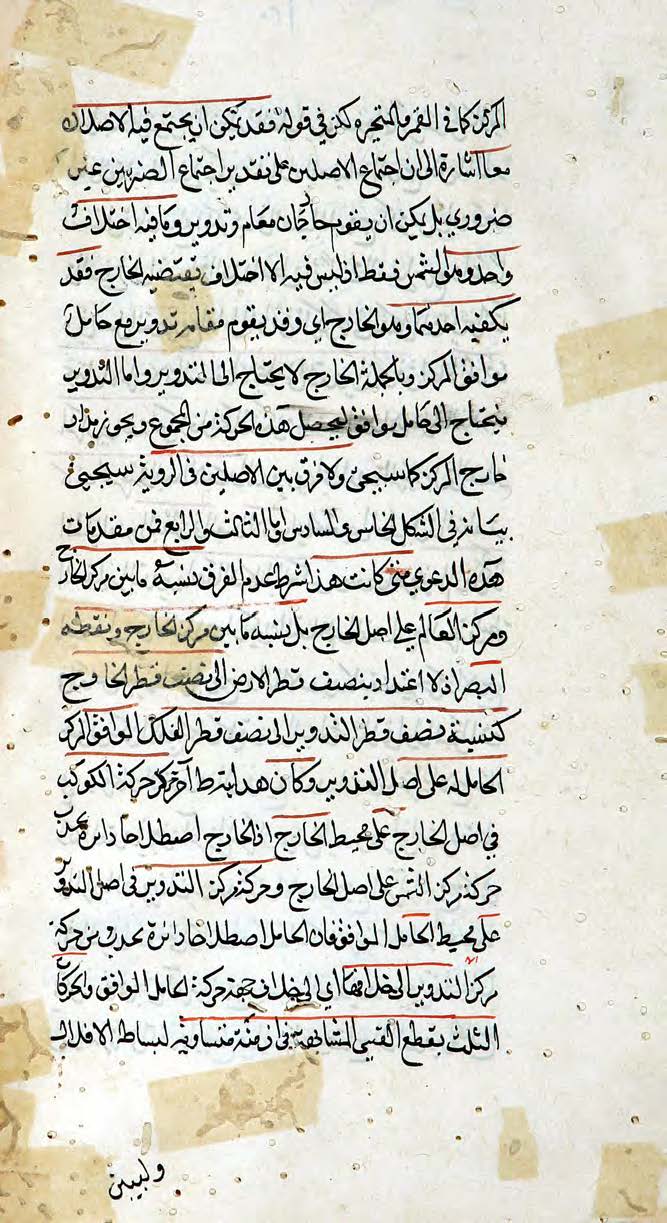 المركز كما في القمر والمتحيره لكن في قوله فقد يمكن ان يجتمع فيه الاصلان
معا اشارة الى ان اجتماع الاصلين على تقدير اجتماع الضربين غير
ضروري بل يمكن ان يقوم خارجان مقام وتدوير وما فيه اختلاف
واحد وهو الشمس فقط اذ ليس فيه الا اختلاف يقتضيه الخارج فقد
يكفيه احدهما وهو الخارج اي وقد يقوم مقامه تدوير مع حامل
موافق المركز وبالجملة الخارج لا يحتاج الى التدوير واما التدوير
فيحتاج الى حامل موافق ليحصل هذه الحركة من المجموع ويجوز
خارج المركز كما سيجيئ ولا فرق بين الاصلين في الروية سيجيئ
بيانه في الشكل الخامس والسادس واما الثالث والرابع فمن مقدمات
هذه الدعوي متى كانت هذا شرط عدم الفرق نسبة ما بين مركز الخارج
ومركز العالم على اصل الخارج بل نسبة ما بين مركز الخارج ونقطة
البصر اذ لا اعتداد بنصف قطر الارض الى نصف قطر الخارج
كنسبة نصف قطر التدوير الى نصف قطر الفلك الموافق المركز
الحامل له على اصل التدوير وكان هذا شرط آخر مركز حركة الكوكب
في اصل الخارج على محيط الخارج اذ الخارج اصطلاحا دائرة يحدث
حركة مركز الشمس على اصل الخارج وحركة مركز التدوير في اصل التدوير
على محيط الحامل الموافق فان الحامل اصطلاحا دائرة يحدث من حركة
مركز التدوير الى خلافها اي الى خلاف جهة حركة الحامل الموافق والحركات
الثلث بقطع القسي المتشابهة في ازمنة متساوية لبساط الافلاك
وليبين